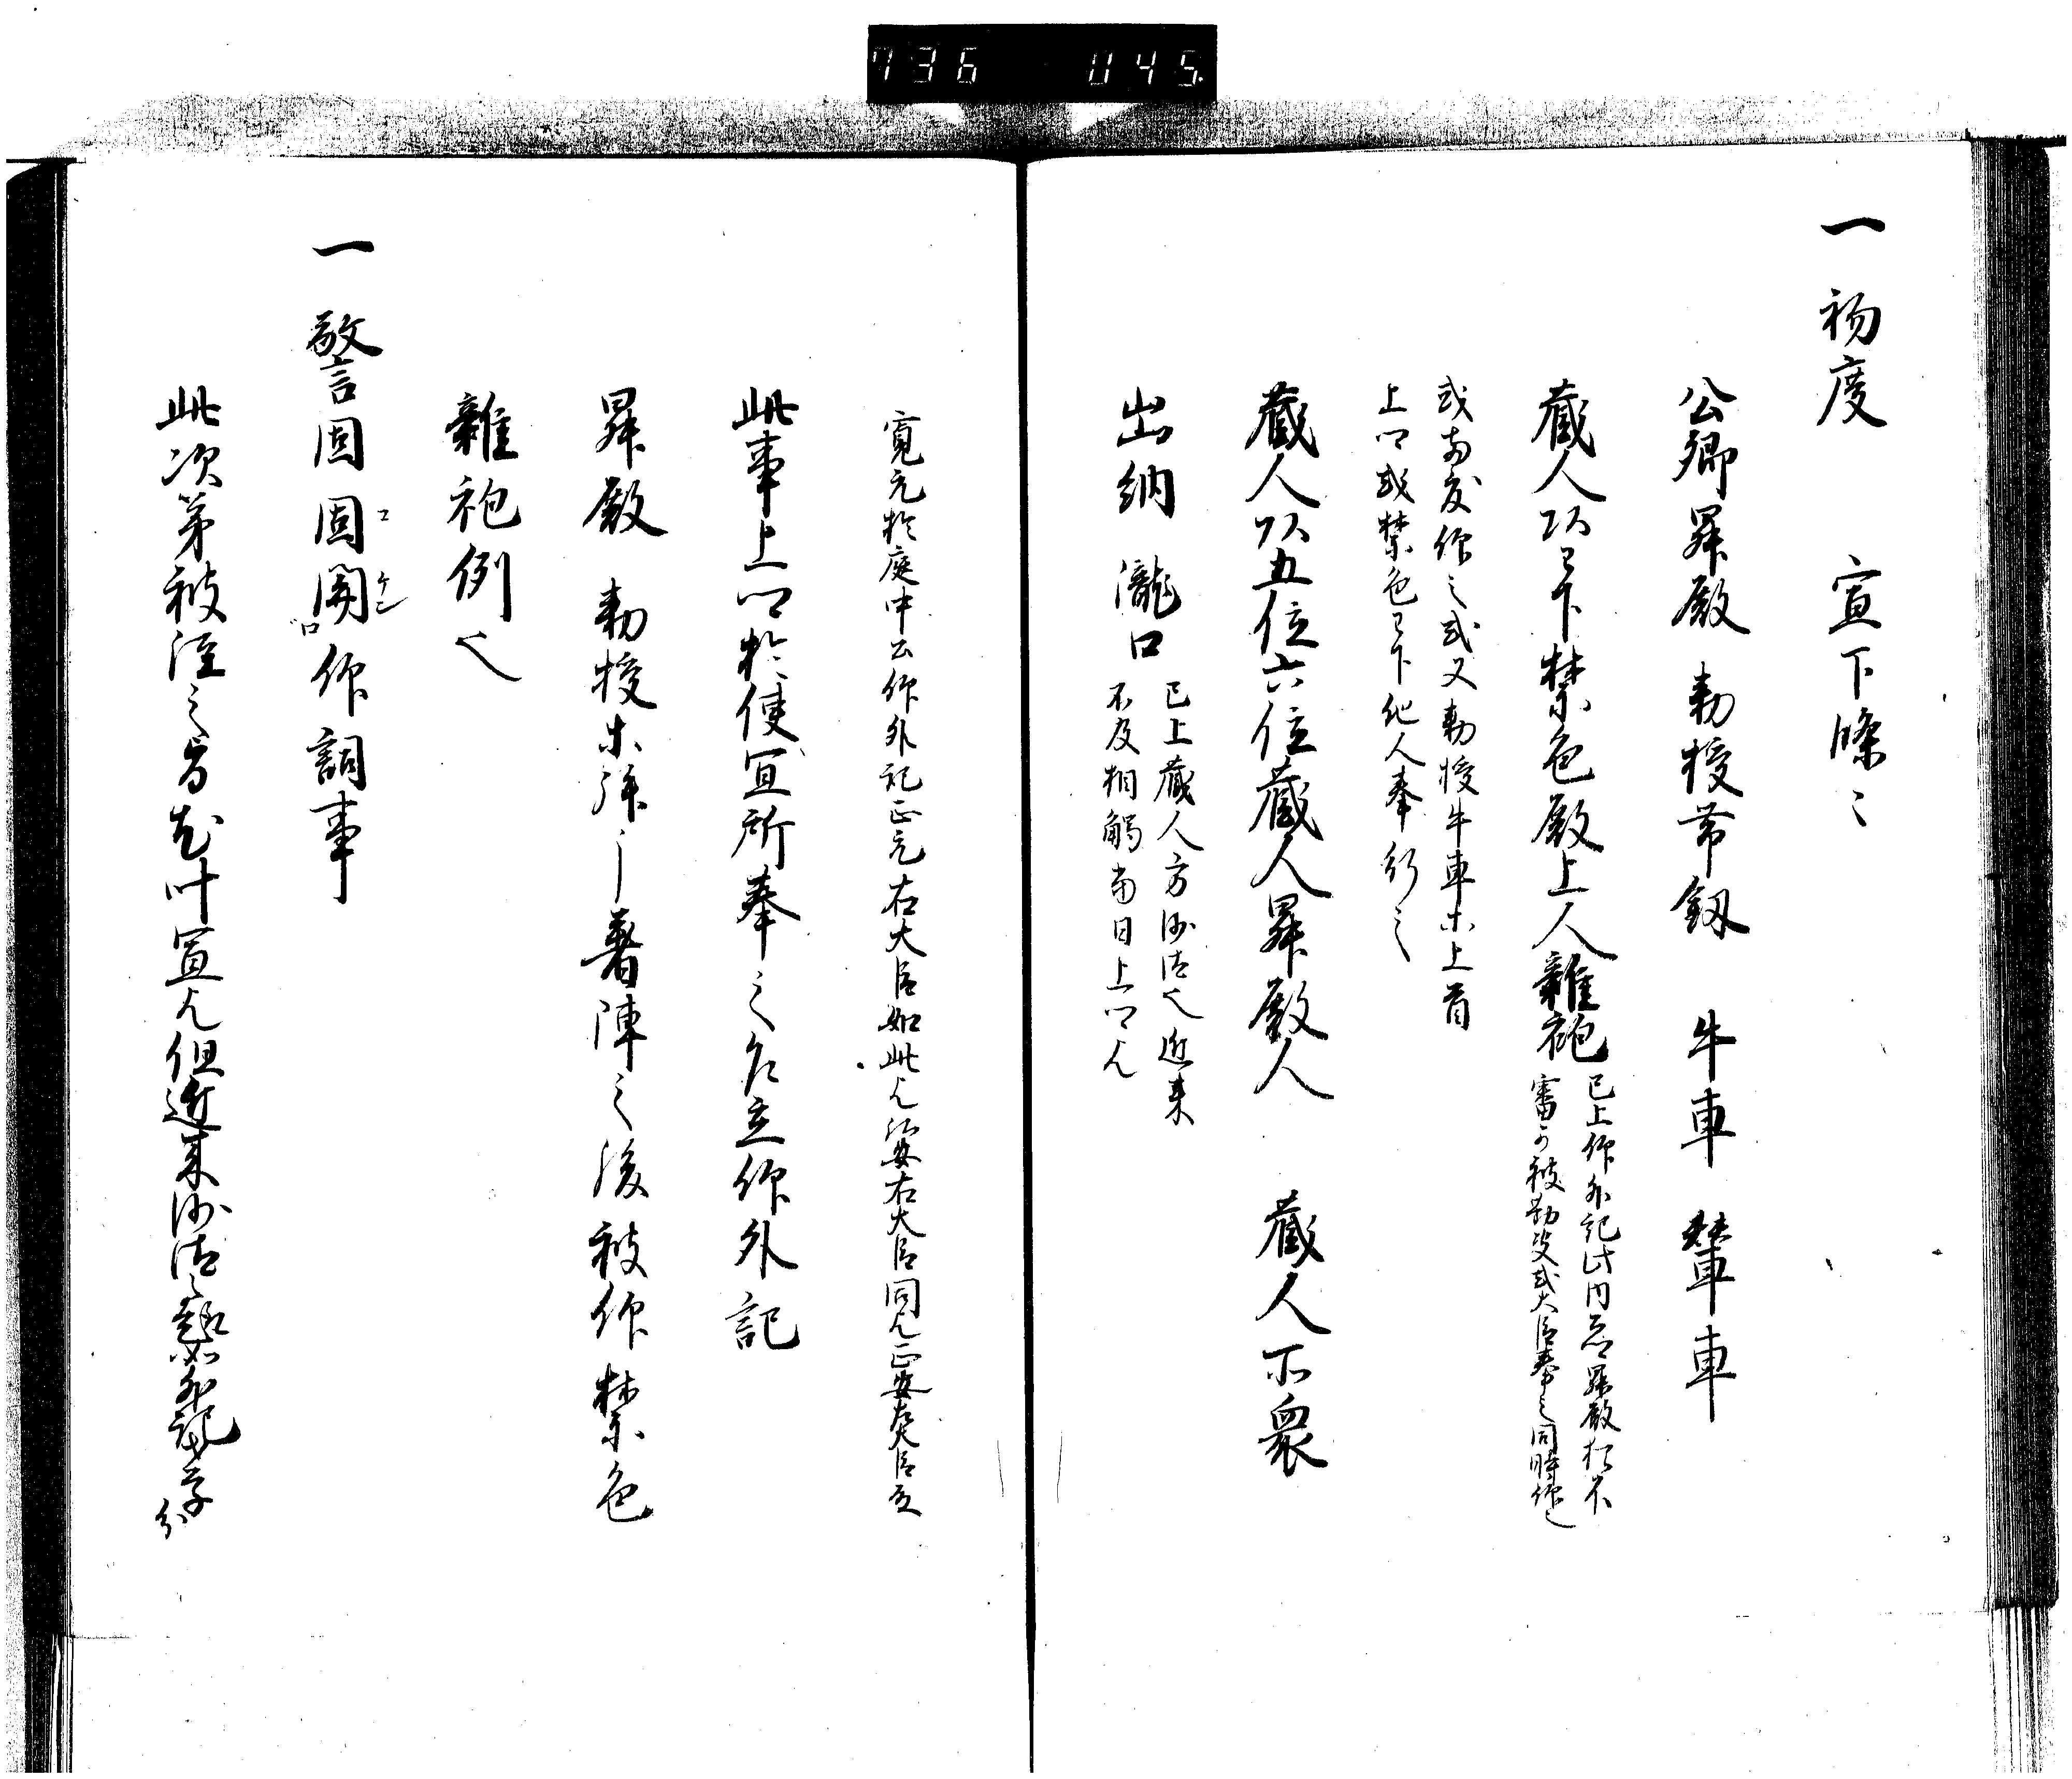 736 045
一 初度 宣下條々
公卿昇殿 勅授帯釼 牛車 輦車
蔵人以下禁色殿上人雜袍
已上仰外記此内昇殿
審可被或大臣奉之同時仰之
或前度仰之或又勅授牛車等上首
上卿或禁色已下他人奉行之
蔵人以五位六位蔵人昇殿人 蔵人所衆
出納 瀧口
已上蔵人方沙汰也近来
不及相觸当日上卿也
寛元於庭中仰外記正元右大臣如此弘安右大臣同正安左大臣又
此事上卿於便宜所奉之 仰外記
昇殿 勅授等拜了著陣之後被仰禁色
雜袍例也
一 警固固関仰詞事
コ ケン
此次第被注之旨尤叶宣但近来沙汰之趣如外記